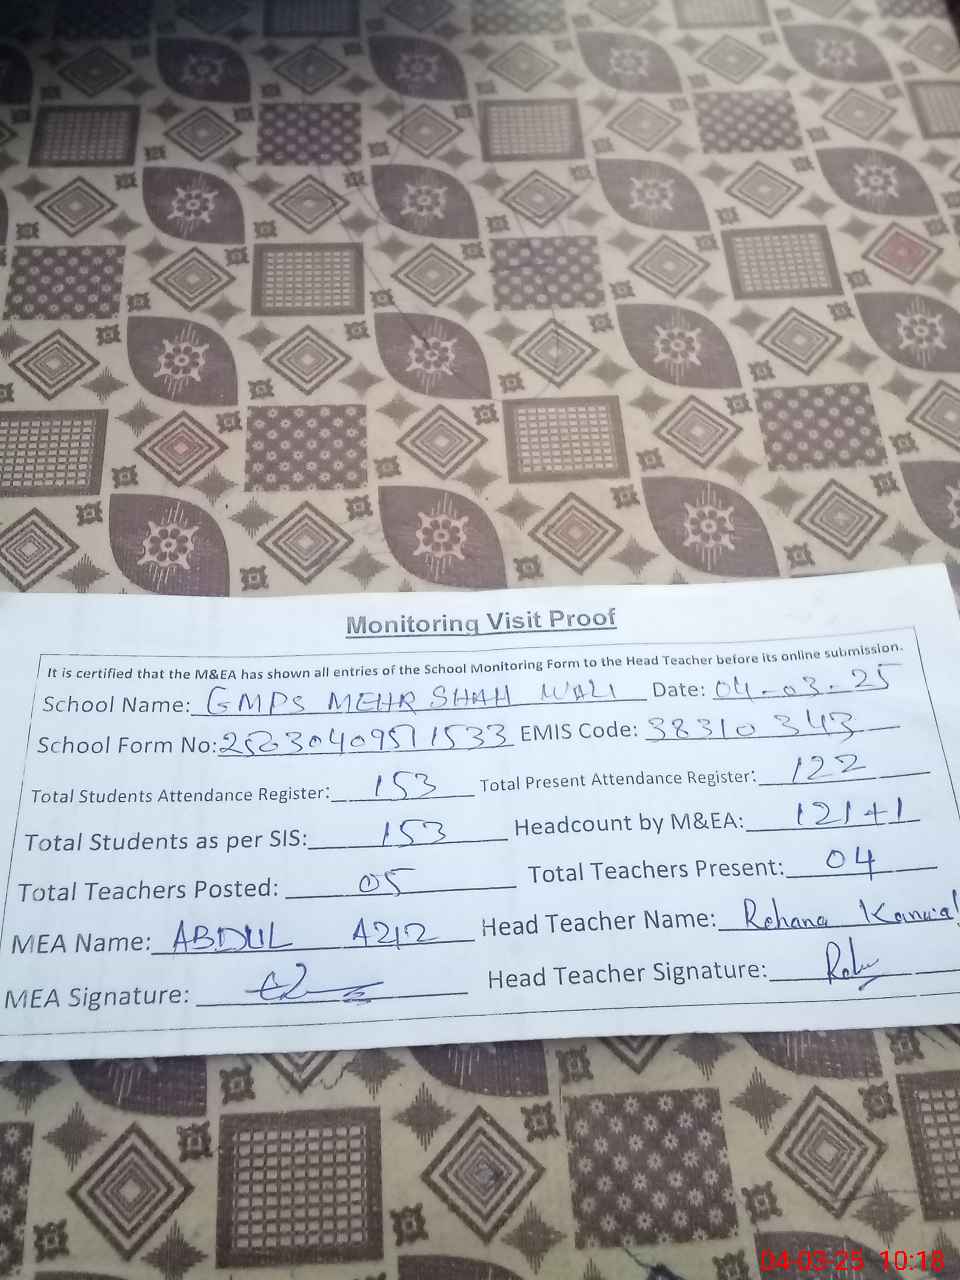 Monitoring Visit Proof
It is certified that the M&EA has shown all entries of the School Monitoring Form to the Head Teacher before its online submission.
School Name: GMPS MEHR SHAH WALI Date: 04-03-25
School Form No: EMIS Code: 38310343
Total Students Attendance Register: 153 Total Present Attendance Register: 122
Total Students as per SIS: 153 Headcount by M&EA: 121+1
Total Teachers Posted: 05 Total Teachers Present: 04
MEA Name: ABDUL AZIZ Head Teacher Name: Rehana Kanwal
MEA Signature: Head Teacher Signature:
04-03-25 10:18